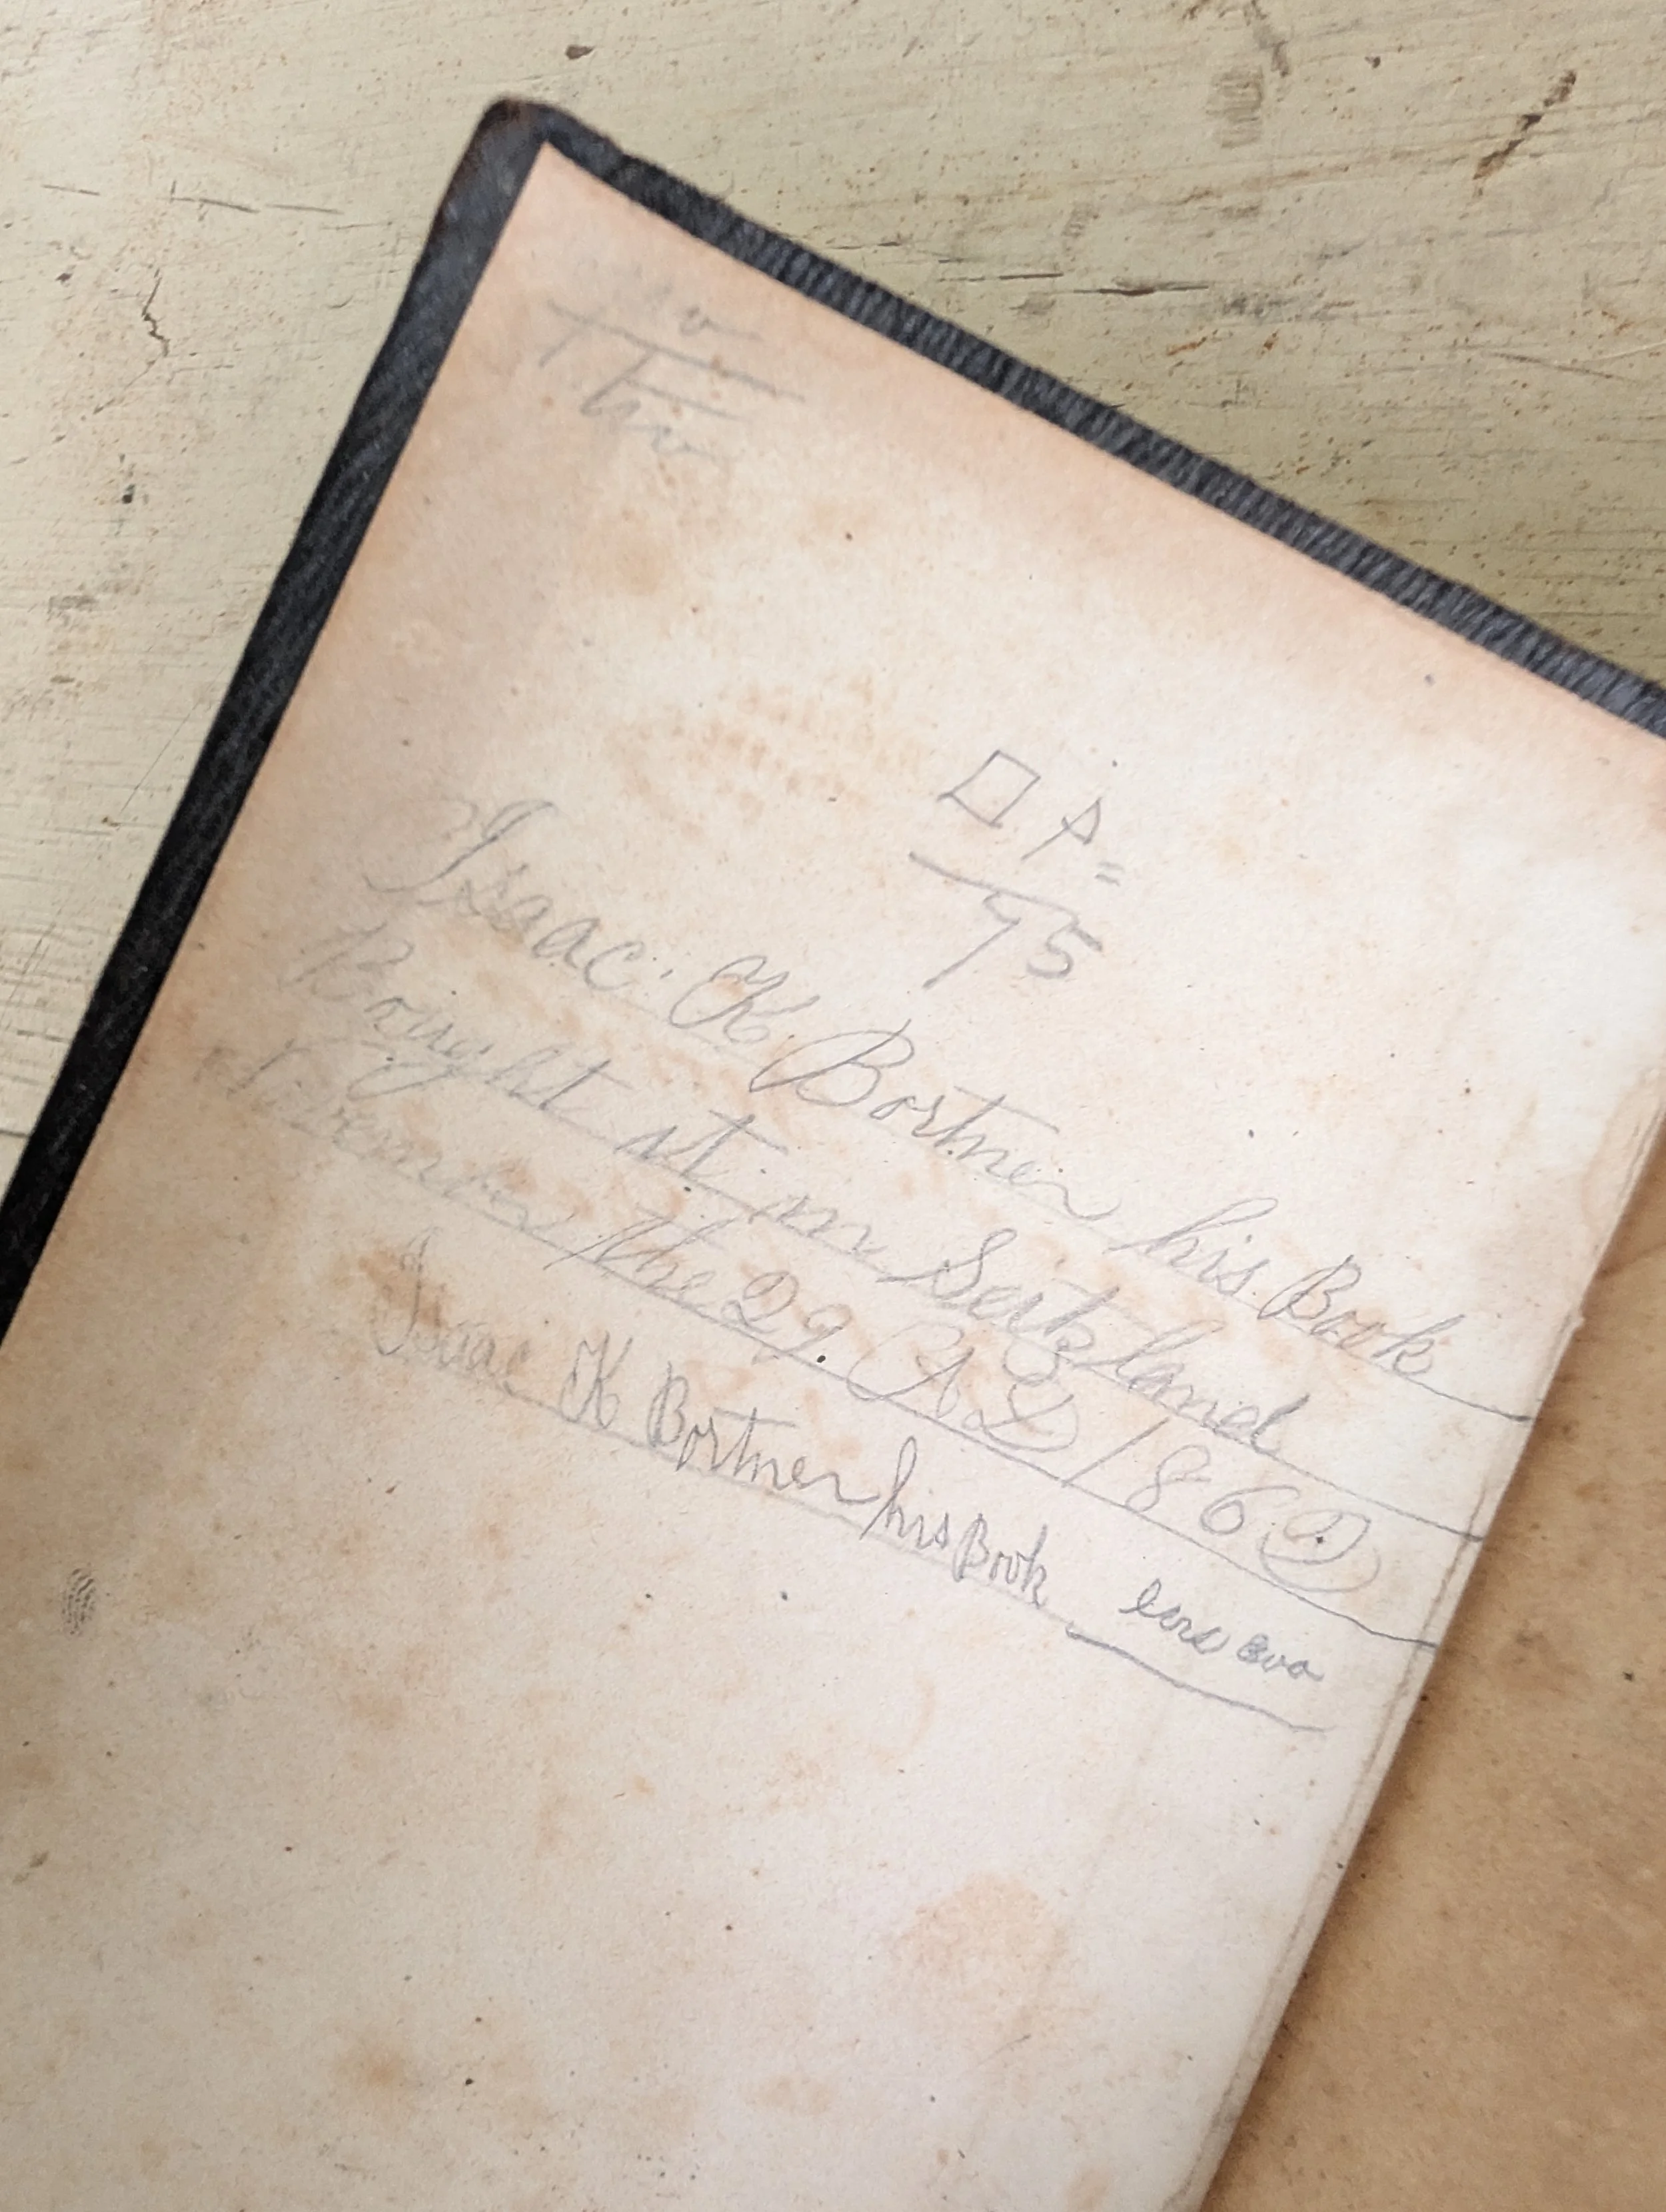 75
Isaac K Bortner his Book
Bought at in Seitzland
November the 22 AD 1862
Isaac K Bortner his Book